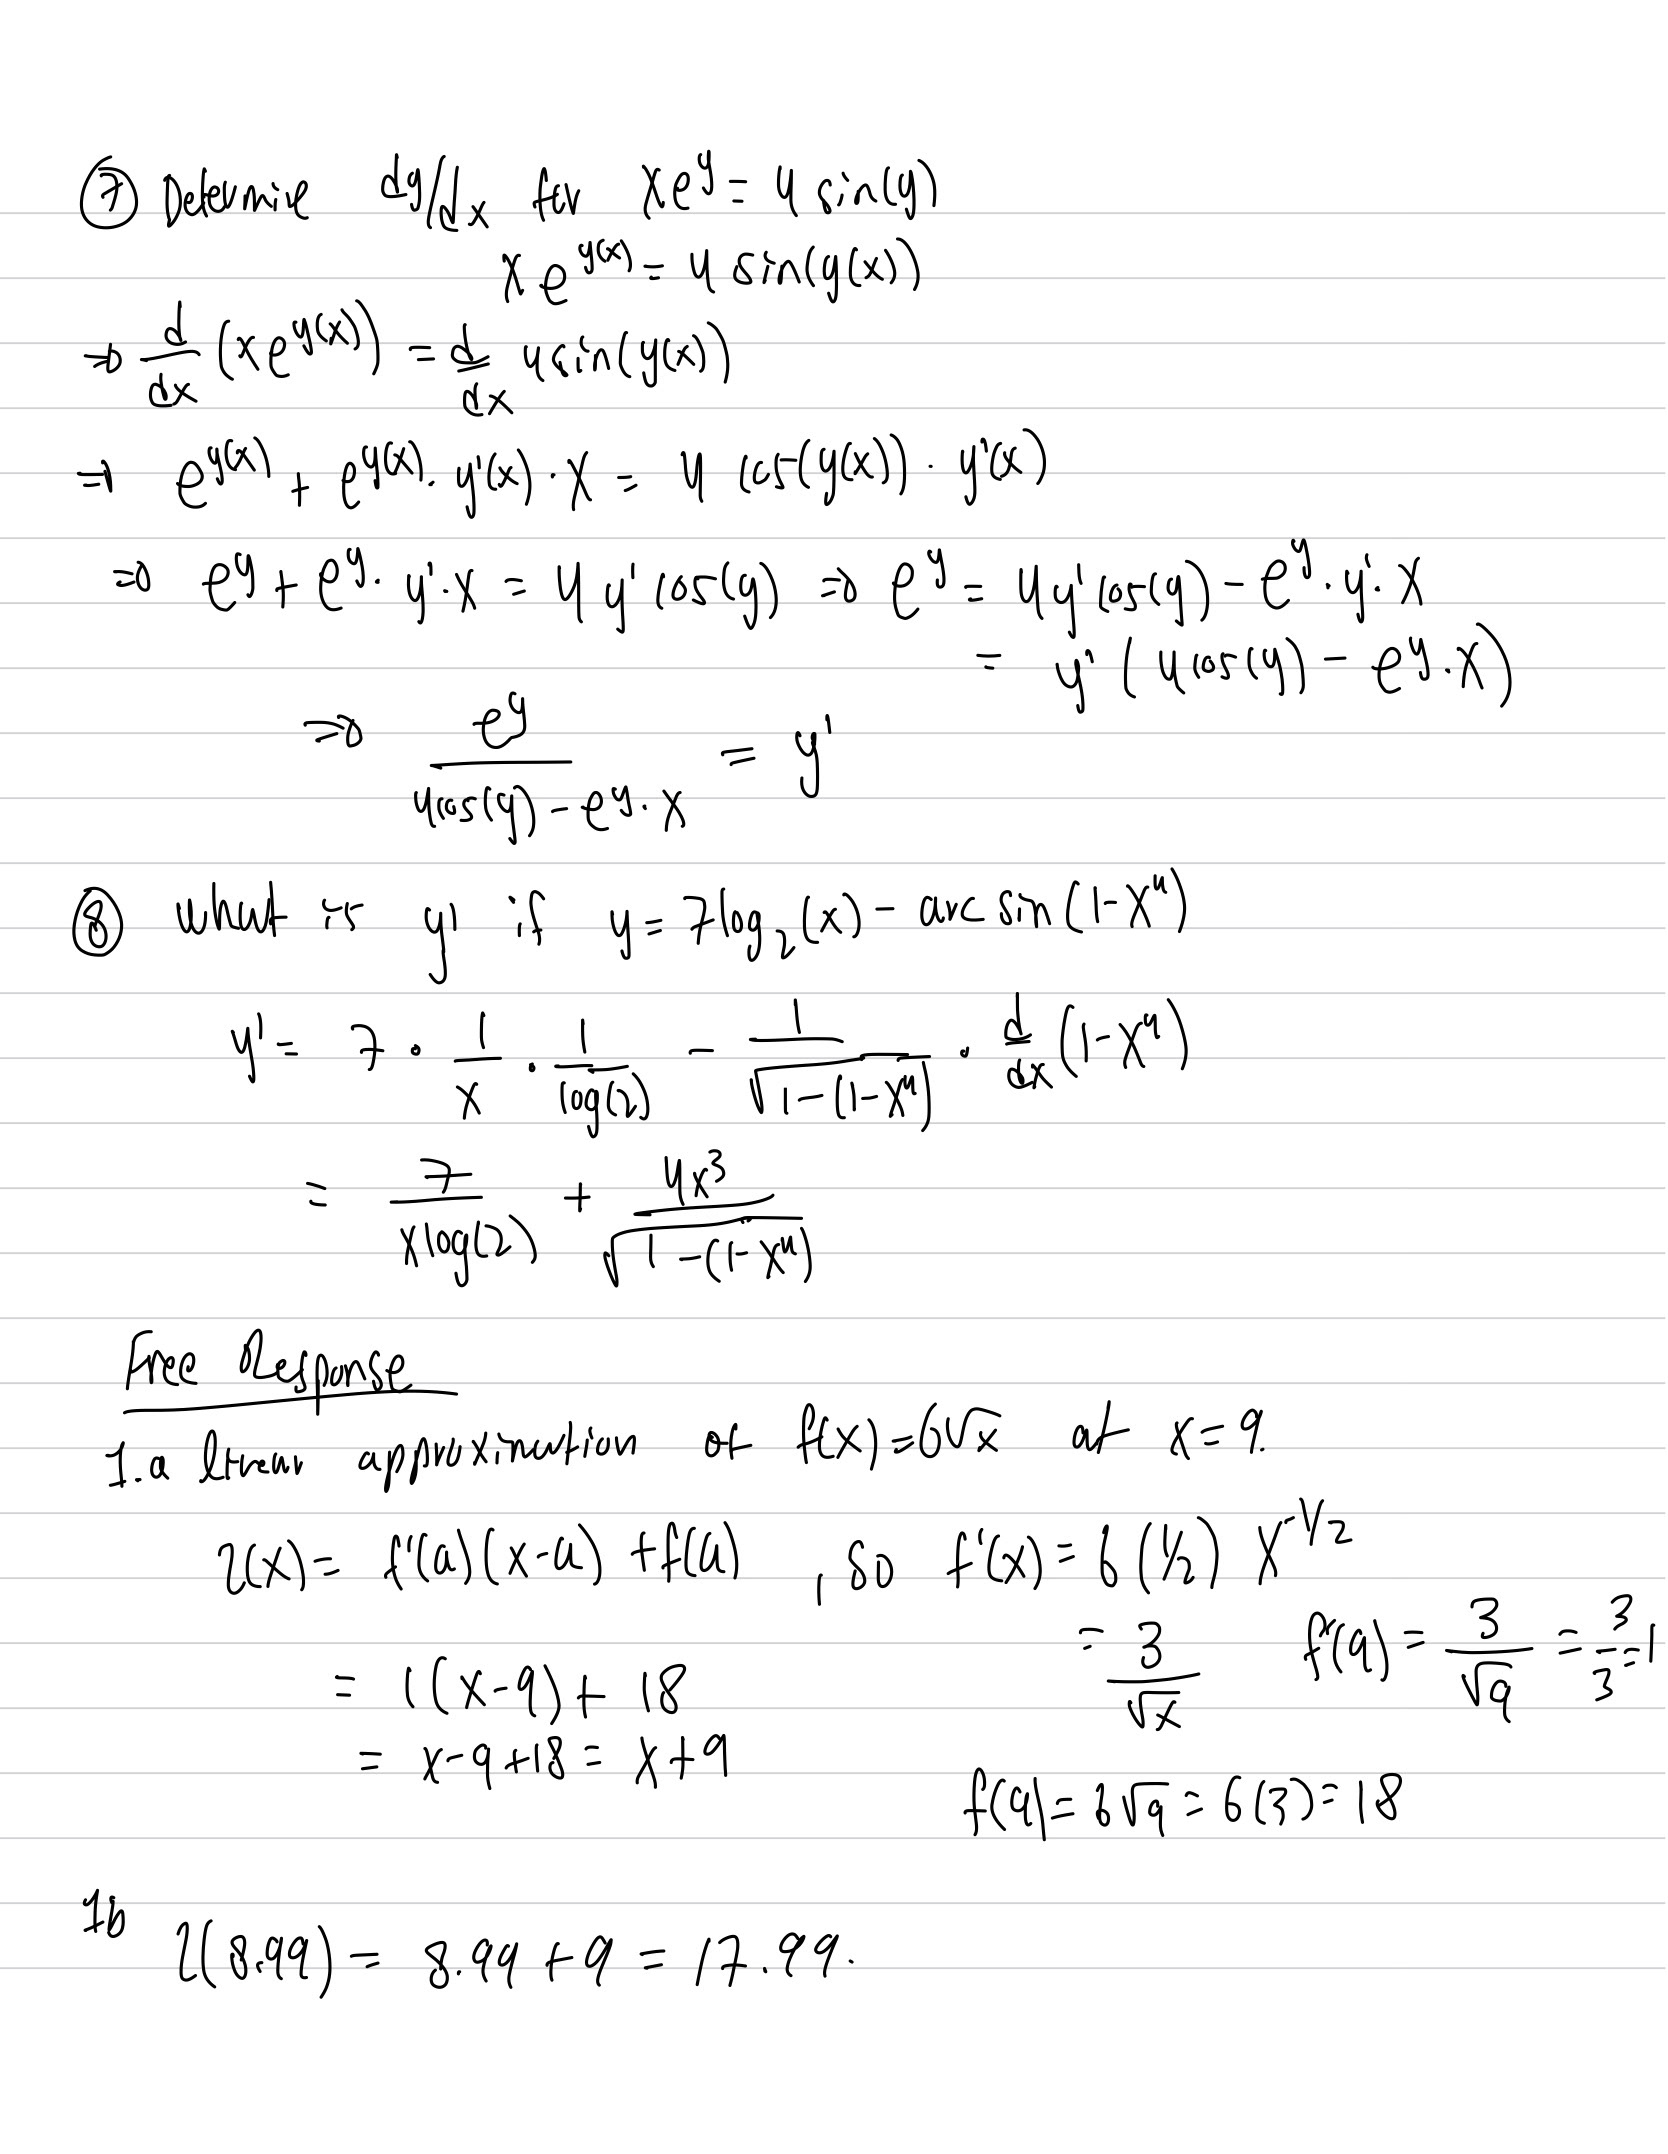 ⑦ Determine dy/dx for xe^y = 4 sin(y)
x e^{y(x)} = 4 sin(y(x))
⇒ d/dx (x e^{y(x)}) = d/dx 4 sin(y(x))
⇒ e^{y(x)} + e^{y(x)} · y'(x) · x = 4 cos(y(x)) · y'(x)
⇒ e^y + e^y · y' · x = 4 y' cos(y) ⇒ e^y = 4y' cos(y) − e^y · y' · x
= y' (4 cos(y) − e^y · x)
⇒ e^y / (4cos(y) − e^y · x) = y'
⑧ what is y' if y = 7 log_2(x) − arc sin(1−x^4)
y' = 7 · 1/x · 1/log(2) − 1/√(1−(1−x^4)) · d/dx (1−x^4)
= 7/(x log(2)) + 4x^3/√(1−(1−x^4))
Free Response
1.a linear approximation of f(x)=6√x at x=9.
l(x) = f'(a)(x−a) + f(a) , so f'(x) = 6 (1/2) x^{-1/2}
= 3/√x f'(9) = 3/√9 = 3/3 = 1
= 1(x−9) + 18
= x−9+18 = x+9
f(9) = 6√9 = 6(3) = 18
1b
l(8.99) = 8.99 + 9 = 17.99.